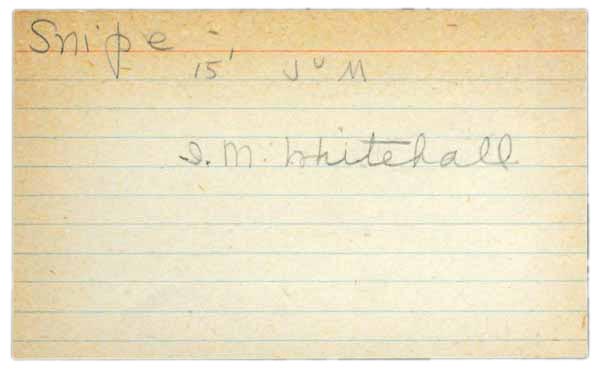 Snipe -
15' J U M
I. M. Whitehall